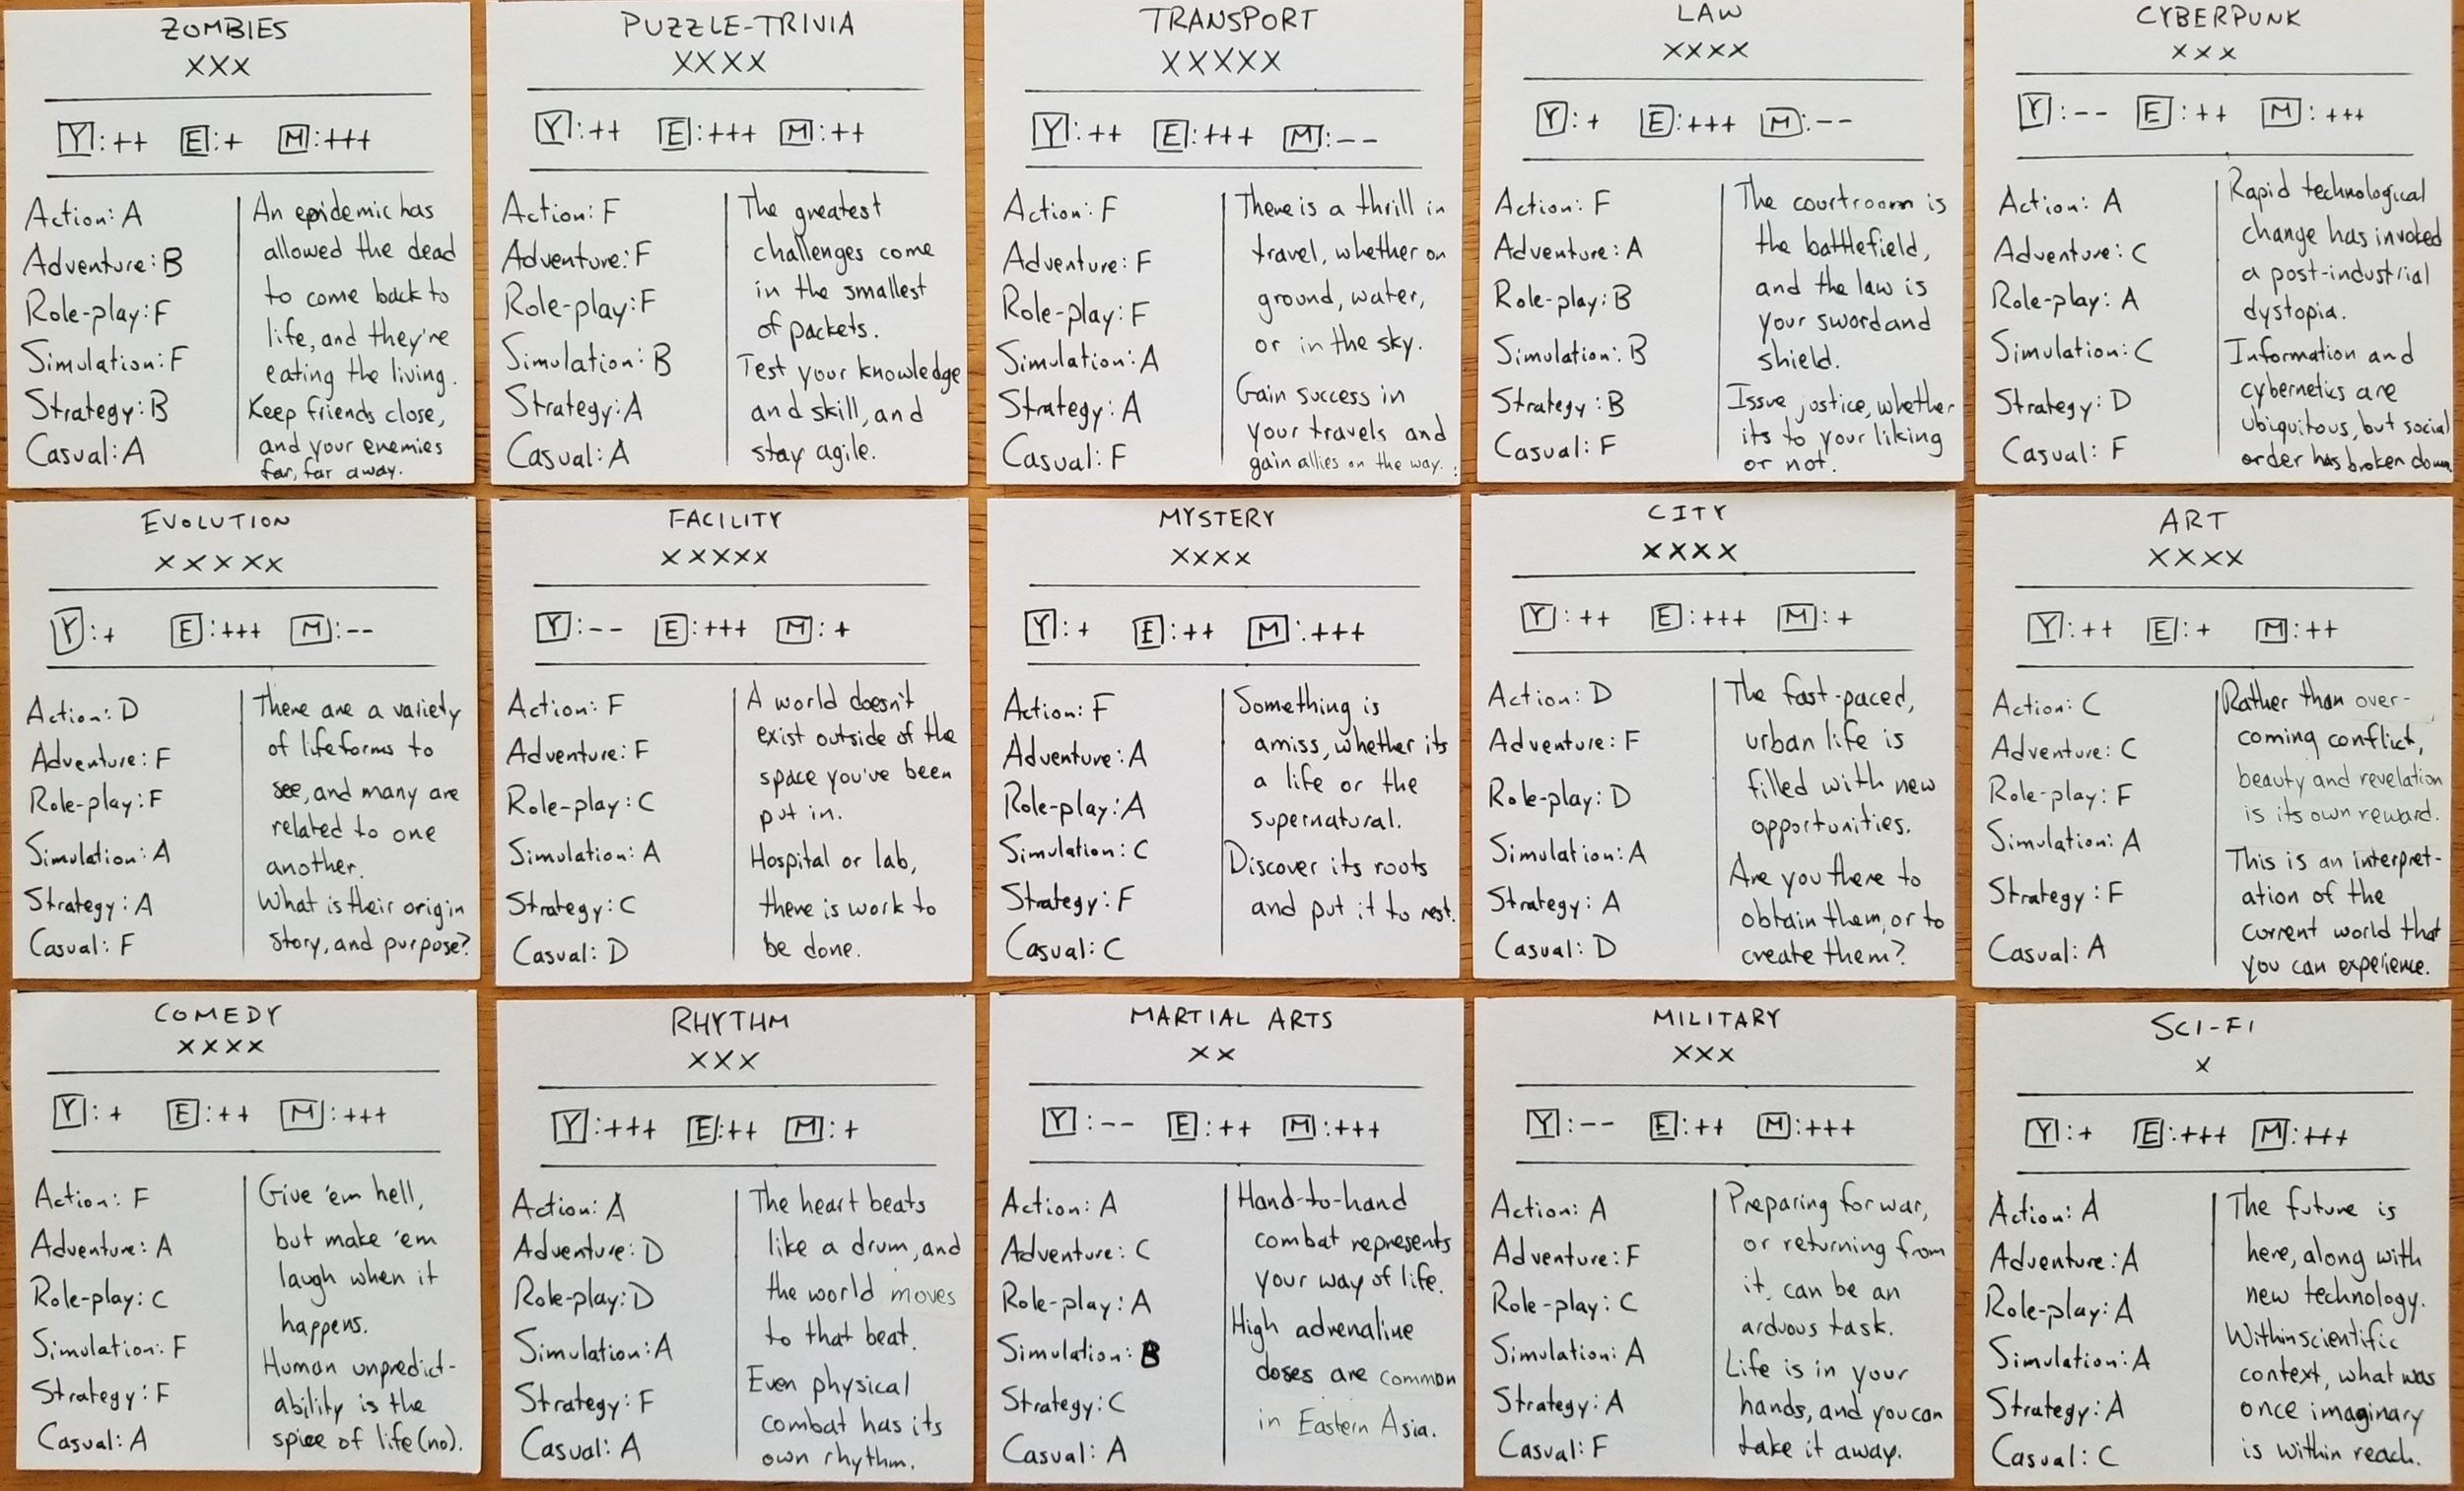 ZOMBIES
XXX
Y:++ E:+ M:+++
Action: A
Adventure: B
Role-play: F
Simulation: F
Strategy: B
Casual: A
An epidemic has
allowed the dead
to come back to
life, and they're
eating the living.
Keep friends close,
and your enemies
far, far away.
PUZZLE-TRIVIA
XXXX
Y:++ E:+++ M:++
Action: F
Adventure: F
Role-play: F
Simulation: B
Strategy: A
Casual: A
The greatest
challenges come
in the smallest
of packets.
Test your knowledge
and skill, and
stay agile.
TRANSPORT
XXXXX
Y:++ E:+++ M:--
Action: F
Adventure: F
Role-play: F
Simulation: A
Strategy: A
Casual: F
There is a thrill in
travel, whether on
ground, water,
or in the sky.
Gain success in
your travels and
gain allies on the way.
LAW
XXXX
Y:+ E:+++ M:--
Action: F
Adventure: A
Role-play: B
Simulation: B
Strategy: B
Casual: F
The courtroom is
the battlefield,
and the law is
your sword and
shield.
Issue justice, whether
its to your liking
or not.
CYBERPUNK
XXX
Y:-- E:++ M:+++
Action: A
Adventure: C
Role-play: A
Simulation: C
Strategy: D
Casual: F
Rapid technological
change has invoked
a post-industrial
dystopia.
Information and
cybernetics are
ubiquitous, but social
order has broken down.
EVOLUTION
XXXXX
Y:+ E:+++ M:--
Action: D
Adventure: F
Role-play: F
Simulation: A
Strategy: A
Casual: F
There are a variety
of lifeforms to
see, and many are
related to one
another.
What is their origin
story, and purpose?
FACILITY
XXXXX
Y:-- E:+++ M:+
Action: F
Adventure: F
Role-play: C
Simulation: A
Strategy: C
Casual: D
A world doesn't
exist outside of the
space you've been
put in.
Hospital or lab,
there is work to
be done.
MYSTERY
XXXX
Y:+ E:++ M:+++
Action: F
Adventure: A
Role-play: A
Simulation: C
Strategy: F
Casual: C
Something is
amiss, whether its
a life or the
supernatural.
Discover its roots
and put it to rest.
CITY
XXXX
Y:++ E:+++ M:+
Action: D
Adventure: F
Role-play: D
Simulation: A
Strategy: A
Casual: D
The fast-paced,
urban life is
filled with new
opportunities.
Are you there to
obtain them, or to
create them?
ART
XXXX
Y:++ E:+ M:++
Action: C
Adventure: C
Role-play: F
Simulation: A
Strategy: F
Casual: A
Rather than over-
coming conflict,
beauty and revelation
is its own reward.
This is an interpret-
ation of the
current world that
you can experience.
COMEDY
XXXX
Y:+ E:++ M:+++
Action: F
Adventure: A
Role-play: C
Simulation: F
Strategy: F
Casual: A
Give 'em hell,
but make 'em
laugh when it
happens.
Human unpredict-
ability is the
spice of life (no).
RHYTHM
XXX
Y:+++ E:++ M:+
Action: A
Adventure: D
Role-play: D
Simulation: A
Strategy: F
Casual: A
The heart beats
like a drum, and
the world moves
to that beat.
Even physical
combat has its
own rhythm.
MARTIAL ARTS
XX
Y:-- E:++ M:+++
Action: A
Adventure: C
Role-play: A
Simulation: B
Strategy: C
Casual: A
Hand-to-hand
combat represents
your way of life.
High adrenaline
doses are common
in Eastern Asia.
MILITARY
XXX
Y:-- E:++ M:+++
Action: A
Adventure: F
Role-play: C
Simulation: A
Strategy: A
Casual: F
Preparing for war,
or returning from
it, can be an
arduous task.
Life is in your
hands, and you can
take it away.
SCI-FI
X
Y:+ E:+++ M:+++
Action: A
Adventure: A
Role-play: A
Simulation: A
Strategy: A
Casual: C
The future is
here, along with
new technology.
Within scientific
context, what was
once imaginary
is within reach.